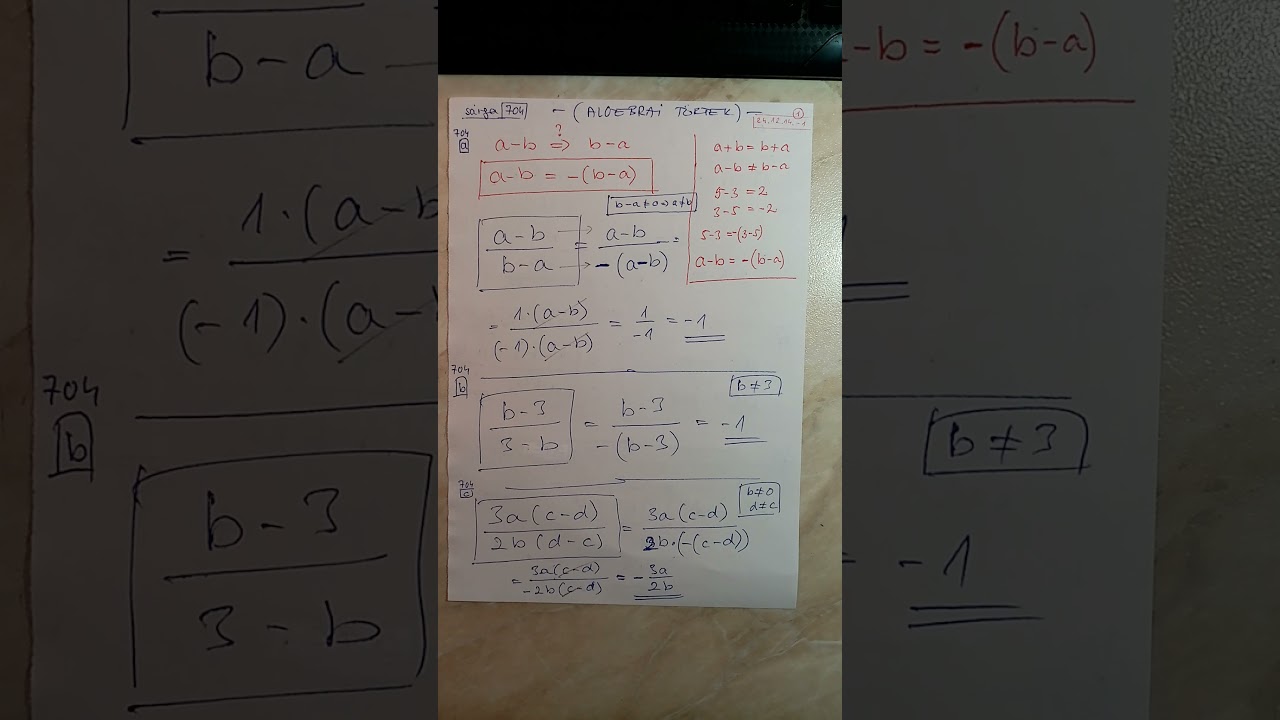 sárga 704 - (ALGEBRAI TÖRTEK) - 1
24.12.14.-1
704
a
a-b ?⇒ b-a
a-b = -(b-a)
a+b = b+a
a-b ≠ b-a
5-3 = 2
3-5 = -2
5-3 = -(3-5)
a-b = -(b-a)
b-a≠0 ⇒ a≠b
a-b / b-a = a-b / -(a-b) =
= 1·(a-b) / (-1)·(a-b) = 1 / -1 = -1
704
b
b≠3
b-3 / 3-b = b-3 / -(b-3) = -1
704
c
b≠0
d≠c
3a(c-d) / 2b(d-c) = 3a(c-d) / 2b·(-(c-d))
= 3a(c-d) / -2b(c-d) = - 3a / 2b
b-a
= 1·(a-b / (-1)·(a-
704
b
b-3 / 3-b
-b = -(b-a)
b≠3
= -1